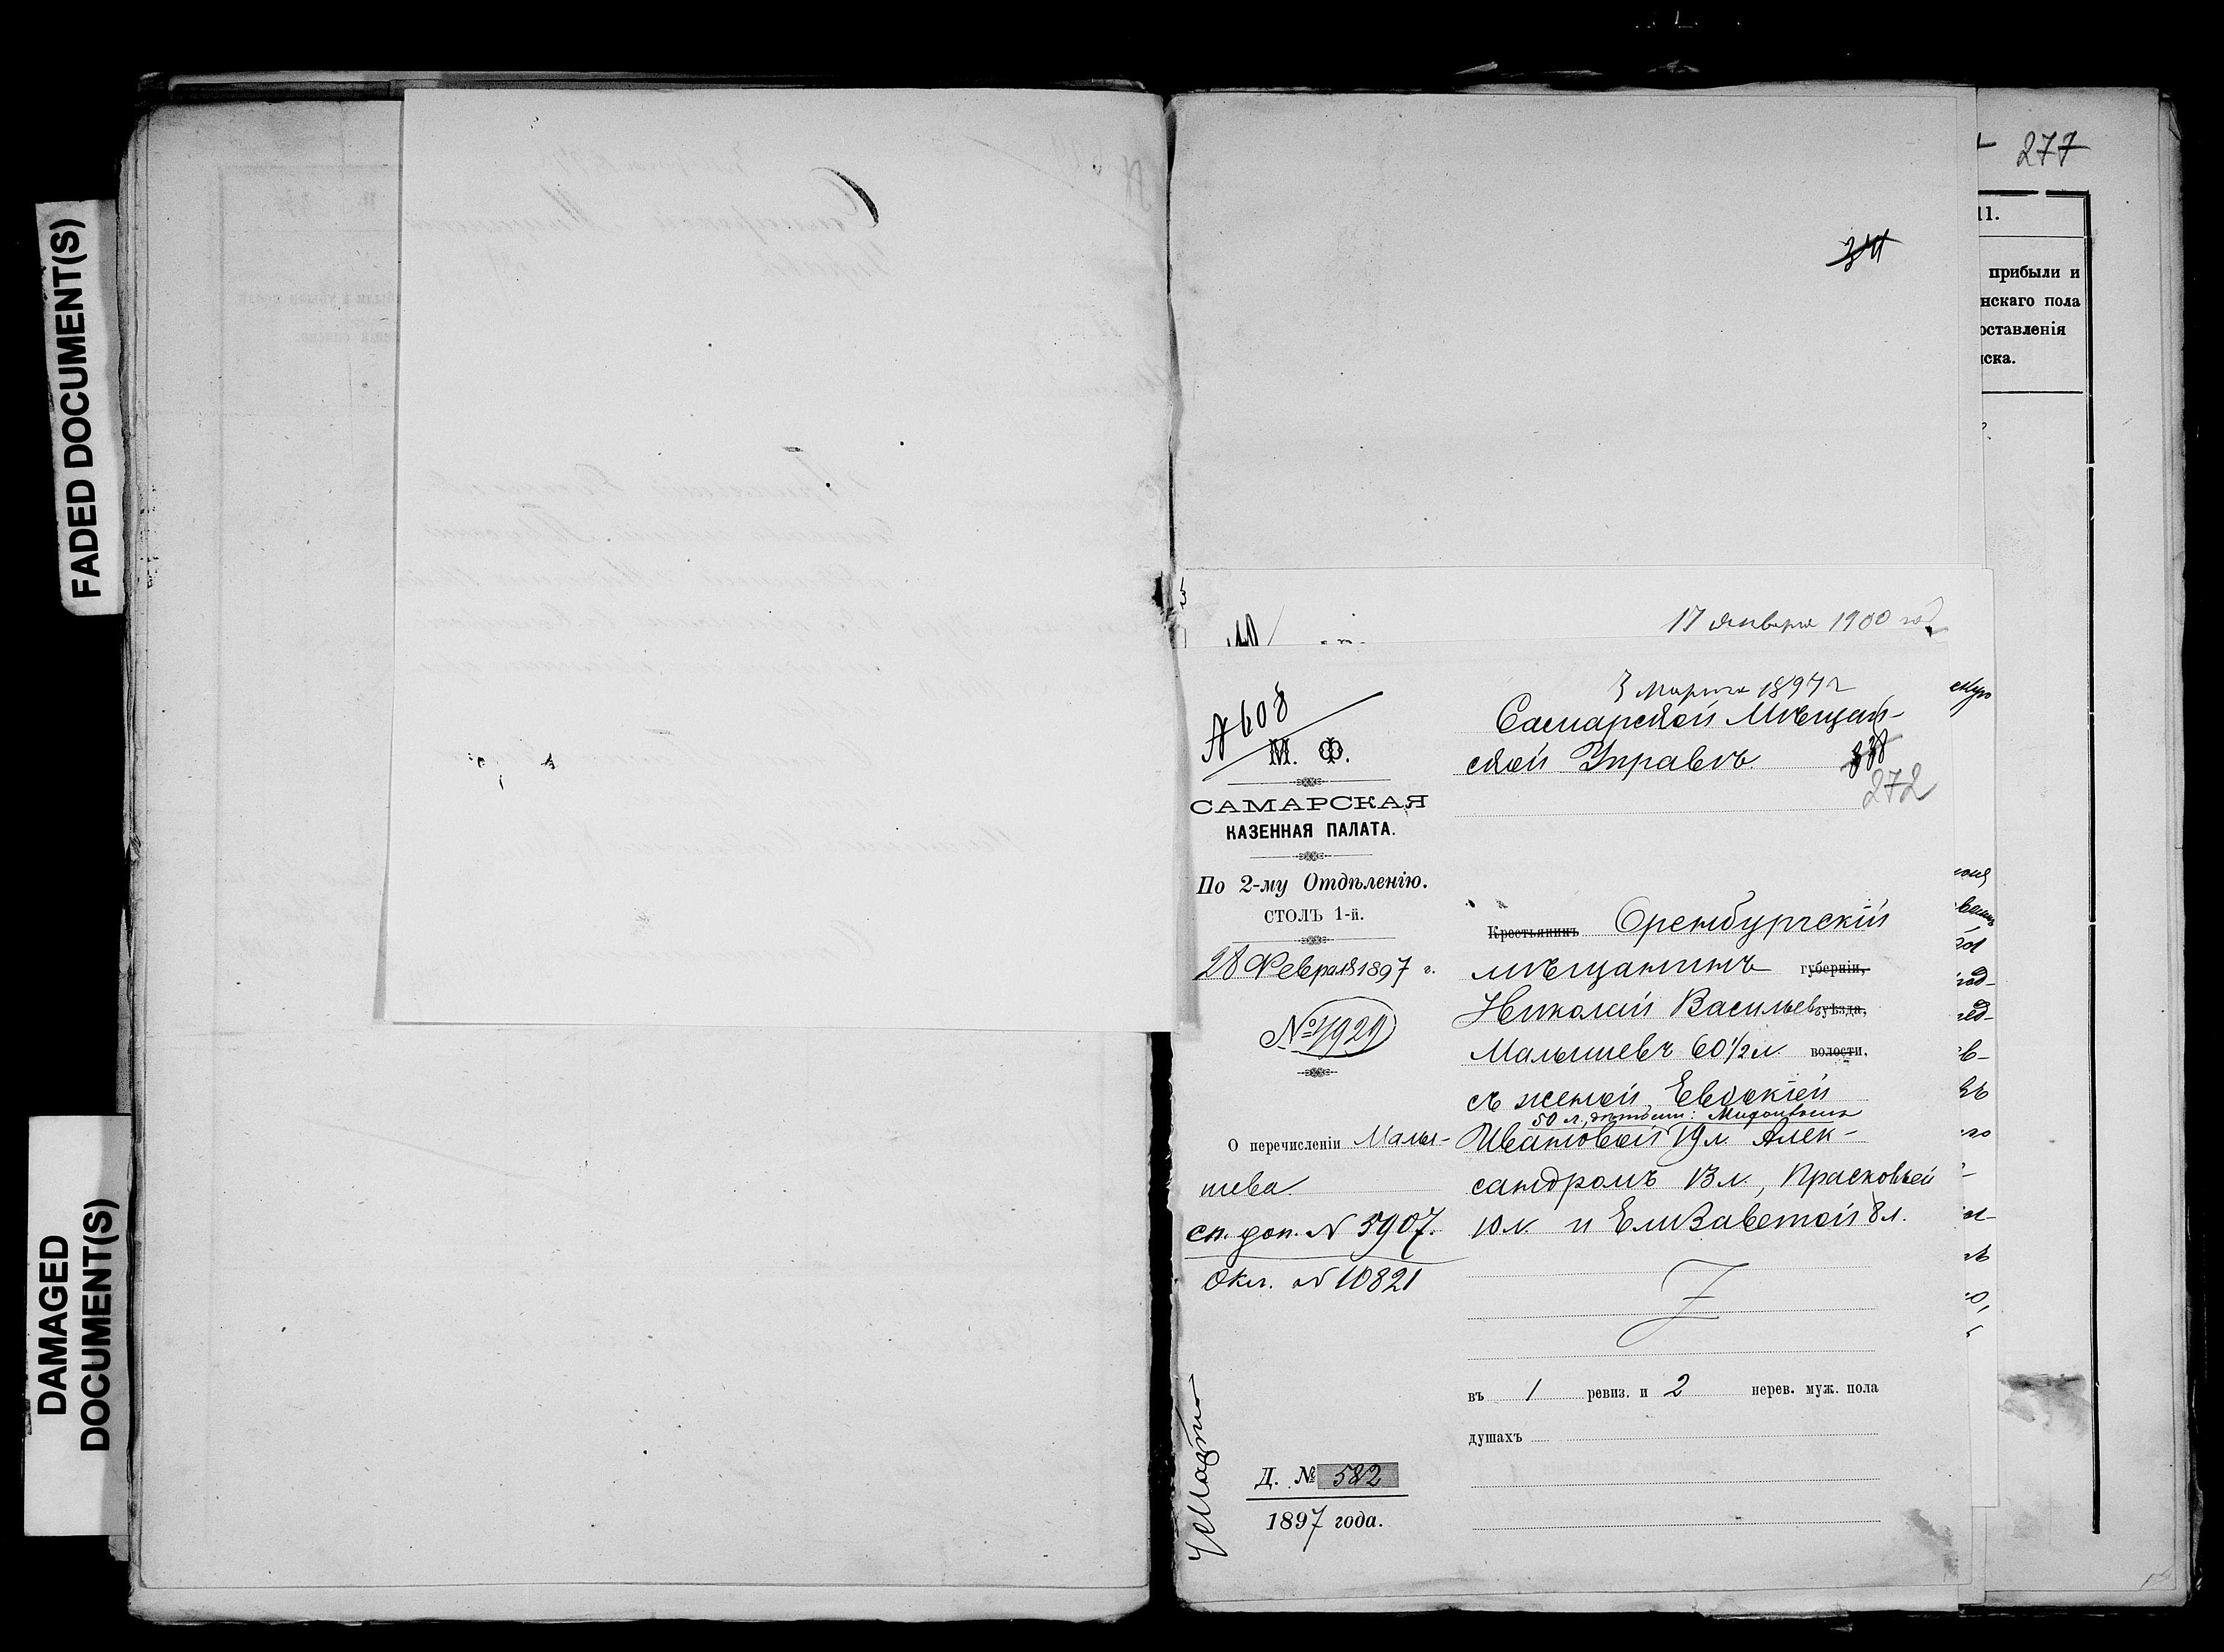 FADED DOCUMENT(S)
DAMAGED
DOCUMENT(S)
277
11.
прибыли и
нскаго пола
оставленія
иска.
17 января 1900 год
3 марта 1897 г
№ 608
М. Ф.
САМАРСКАЯ
КАЗЕННАЯ ПАЛАТА.
По 2-му Отдѣленію.
СТОЛЪ 1-й.
28 Февраля 1897 г.
№ 4929
О перечисленіи Малы-
шева.
сп. доп. № 5907.
Окл. № 10821
4 Марта
Д. № 582
1897 года.
Самарской Мѣщан-
ской Управѣ
338
272
Крестьянинъ Оренбургскій
мѣщанинъ губерніи,
Николай Васильевъ уѣзда,
Малышевъ 60 1/2 л. волости,
съ женой Евдокіей
50 л., дѣтьми:
Ивановой 19 л. Алек-
сандромъ 13 л., Прасковьей
10 л. и Елизаветой 8 л.
въ 1 ревиз. и 2 нерев. муж. пола
душахъ